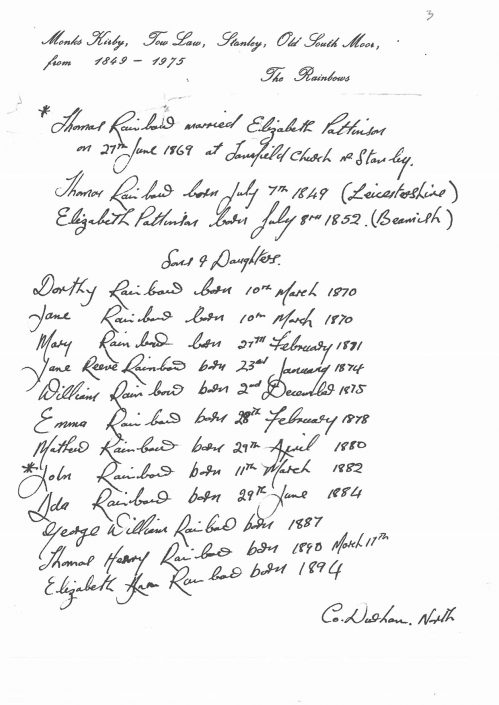 3
Monks Kirby, Tow Law, Stanley, Old South Moor,
from 1849 - 1975
The Rainbows
* Thomas Rainbow married Elizabeth Pattinson
on 27th June 1869 at Tanfield Church nr Stanley.
Thomas Rainbow born July 7th 1849 (Leicestershire)
Elizabeth Pattinson born July 8th 1852. (Beamish)
Sons & Daughters.
Dorthy Rainbow born 10th March 1870
Jane Rainbow born 10th March 1870
Mary Rainbow born 27th February 1871
Jane Reeve Rainbow born 23rd January 1874
William Rainbow born 2nd December 1875
Emma Rainbow born 28th February 1878
Mathew Rainbow born 29th April 1880
* John Rainbow born 11th March 1882
Ada Rainbow born 29th June 1884
George William Rainbow born 1887
Thomas Henry Rainbow born 1890 March 17th
Elizabeth Rainbow born 1894
Co. Durham. North